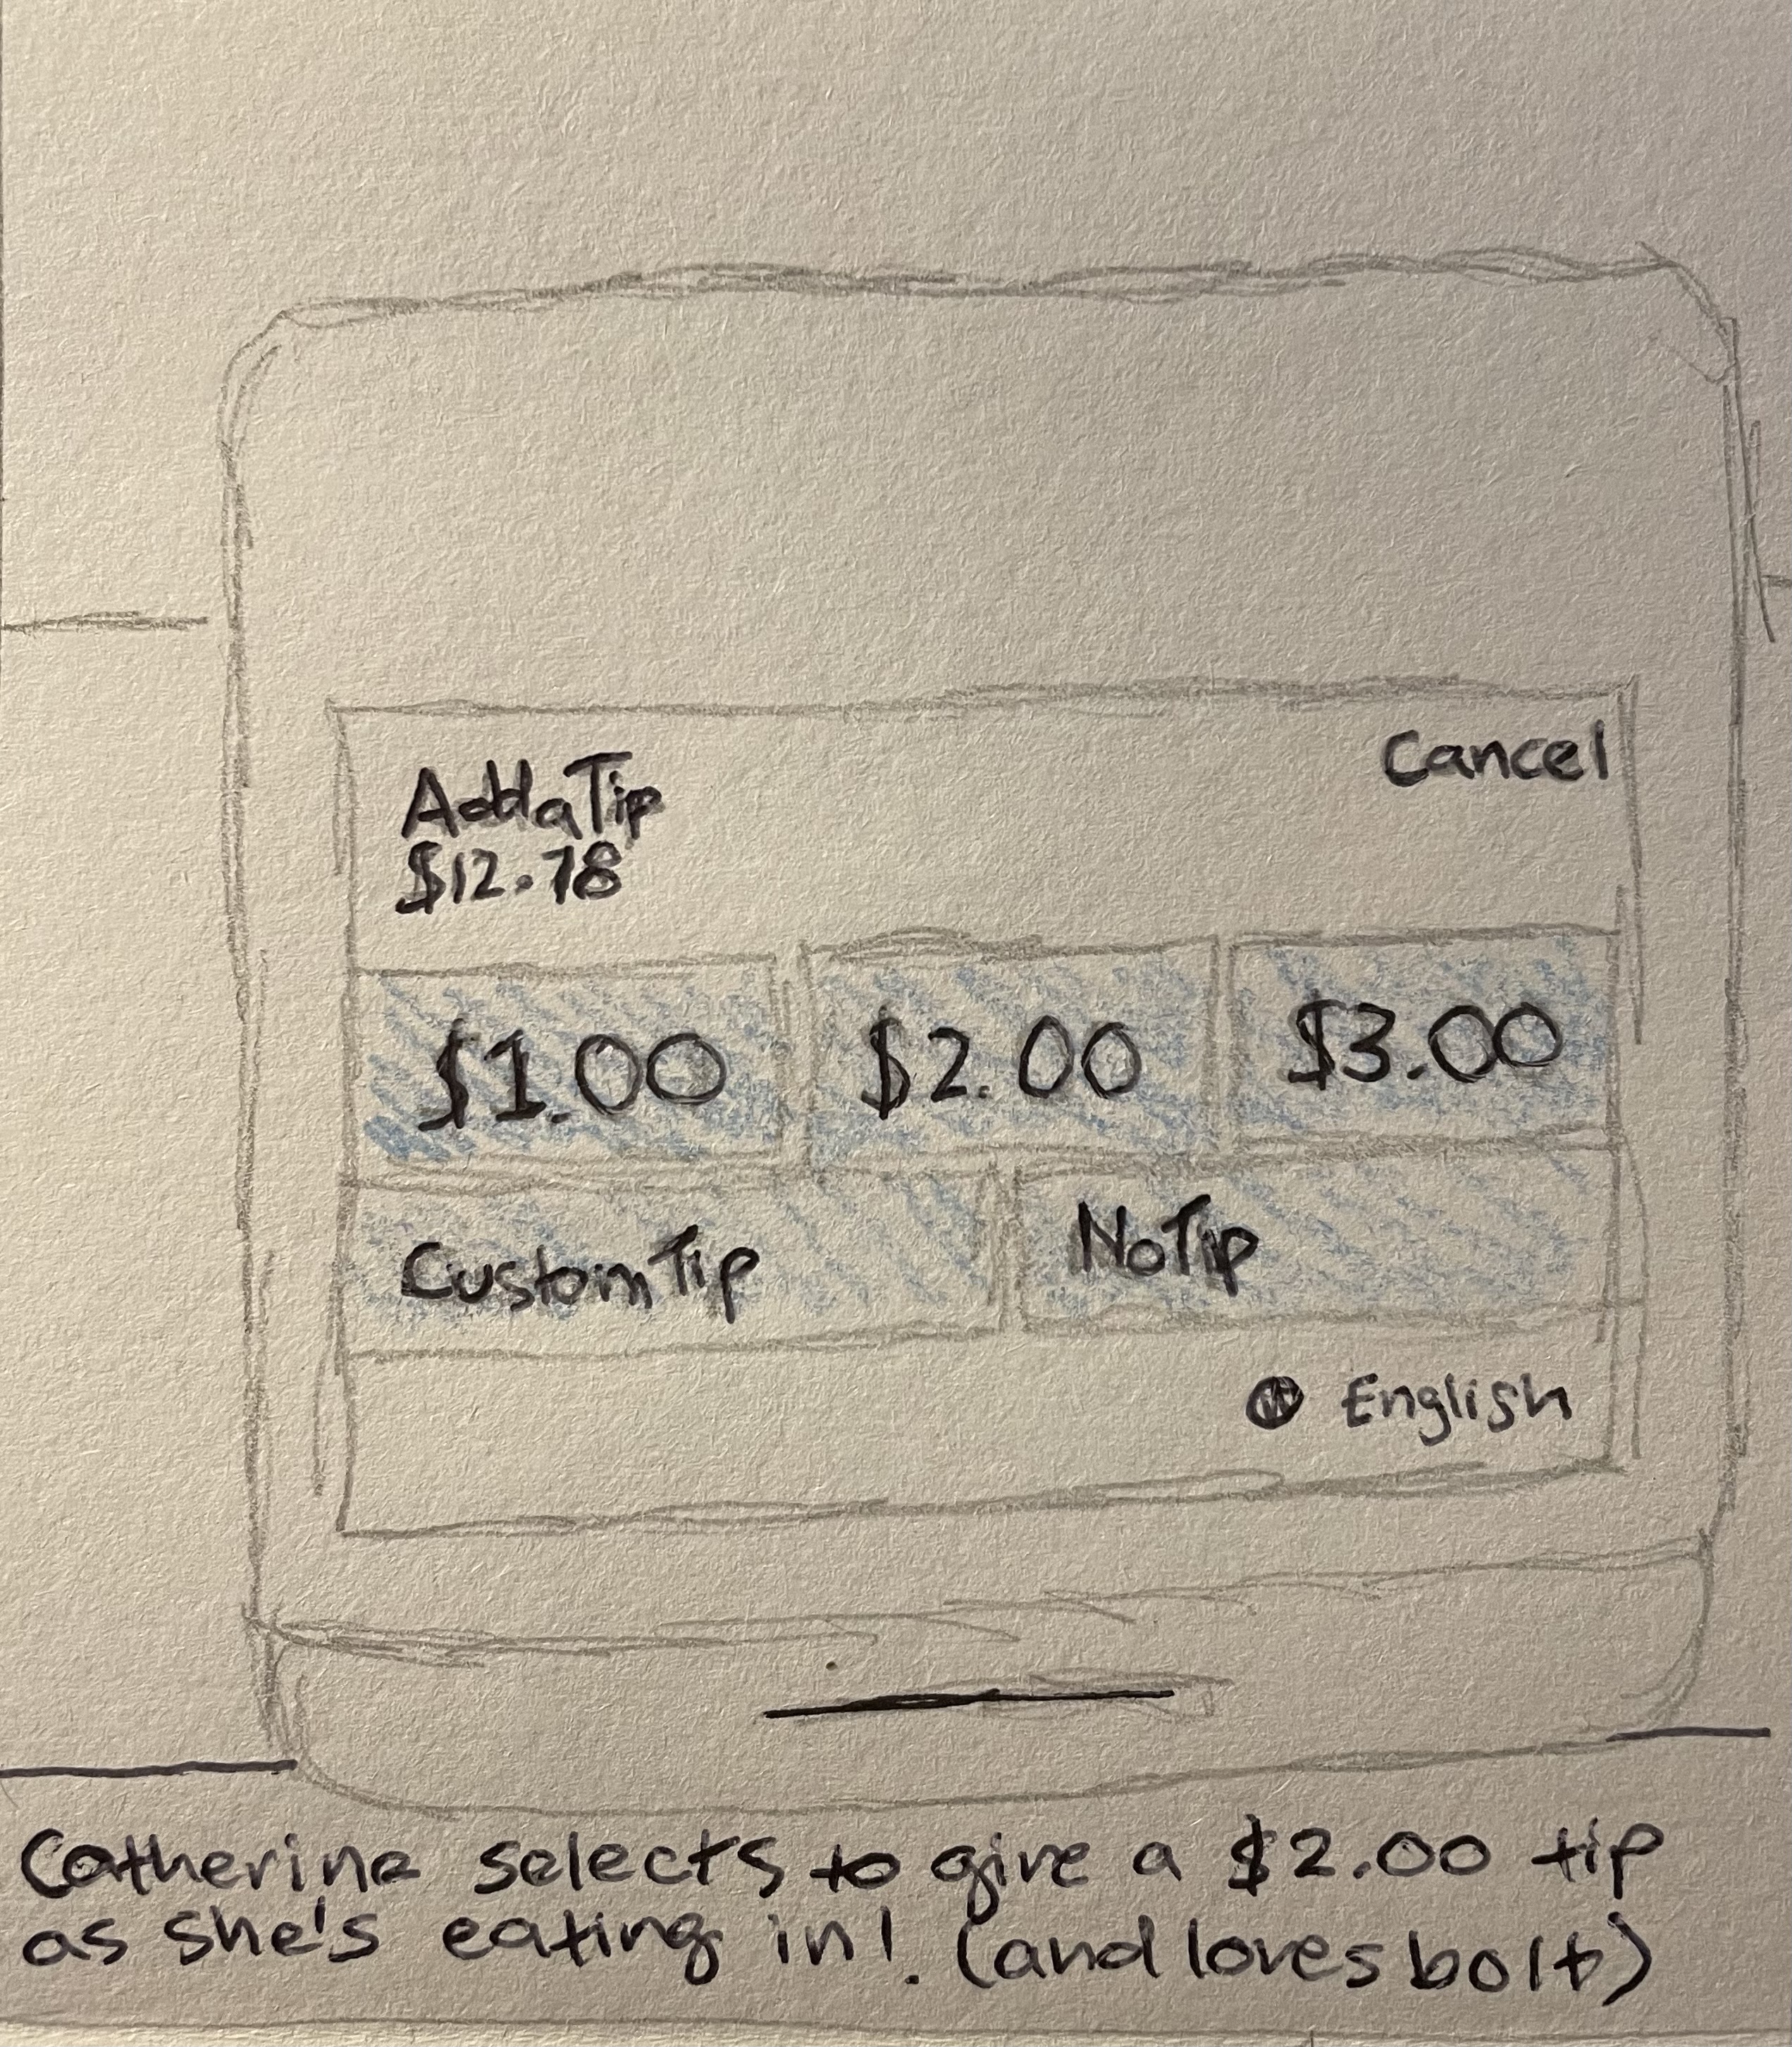 Add a Tip
Cancel
$12.78
$1.00
$2.00
$3.00
Custom Tip
No Tip
English
Catherine selects to give a $2.00 tip
as she's eating in!. (and loves bolt)